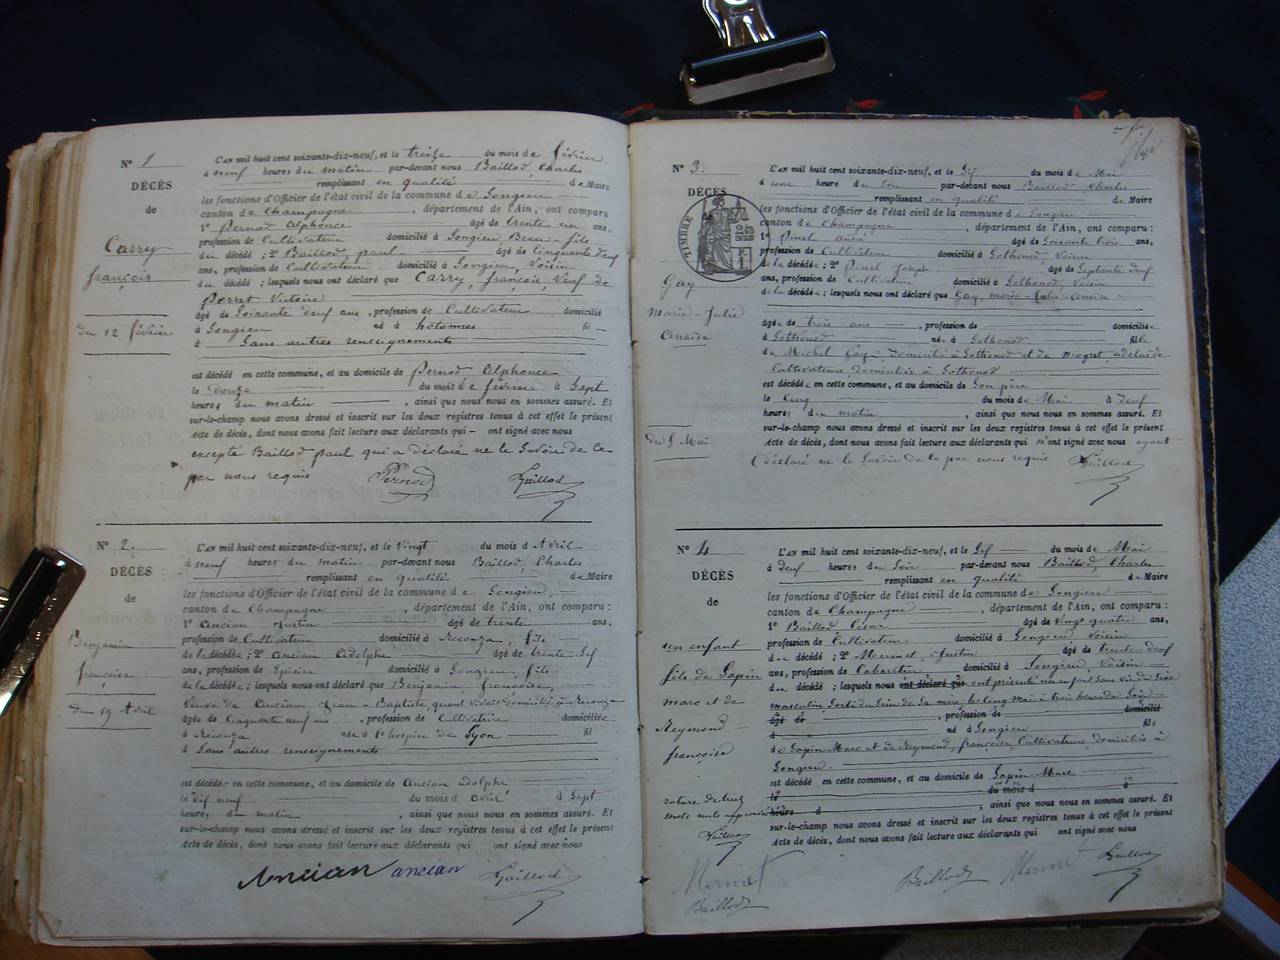 N° 1
DÉCÈS
de
Carry
françois
du 12 février
L'AN mil huit cent soixante-dix-neuf, et le treize du mois de février
à neuf heures du matin par-devant nous Baillod Charles
remplissant en qualité de Maire
les fonctions d'Officier de l'état civil de la commune de Songieu
canton de Champagne, département de l'Ain, ont comparu
1° Pernod Alphonse âgé de trente un ans,
profession de Cultivateur domicilié à Songieu Beau-fils
du décédé ; 2° Baillod, paul âgé de Cinquante neuf
ans, profession de Cultivateur domicilié à Songieu, Voisin
du décédé ; lesquels nous ont déclaré que Carry, françois, Veuf de
Perret Victoire
âgé de Soixante neuf ans, profession de Cultivateur domicilié
à Songieu né à hotonnes fil
à Sans autres renseignements
est décédé en cette commune, et au domicile de Pernod Alphonse
le Douze du mois de février à Sept
heures du matin, ainsi que nous nous en sommes assuré. Et
sur-le-champ nous avons dressé et inscrit sur les deux registres tenus à cet effet le présent
Acte de décès, dont nous avons fait lecture aux déclarants qui - ont signé avec nous
excepté Baillod paul qui a déclaré ne le Savoir de ce
par nous requis Pernod Baillod
N° 2.
DÉCÈS
de
Benjamin
françoise
du 19 Avril
L'AN mil huit cent soixante-dix-neuf, et le Vingt du mois d Avril
à neuf heures du matin, par-devant nous Baillod, Charles
remplissant en qualité de Maire
les fonctions d'Officier de l'état civil de la commune de Songieu,
canton de Champagne, département de l'Ain, ont comparu :
1° Ancian Justin âgé de trente ans,
profession de Cultivateur domicilié à fils
de la décédée ; 2° Ancian Adolphe âgé de trente Six
ans, profession de Epicier domicilié à Songieu, fils
de la décédée ; lesquels nous ont déclaré que Benjamin, françoise,
Veuve de Ancian Jean-Baptiste, quant vivait domicilié à
âgée de Cinquante neuf ans, profession de Cultivatrice domiciliée
à née à l'hospice de Lyon fil
à Sans autres renseignements
est décédée en cette commune, et au domicile de Ancian adolphe
le dix neuf du mois d avril à Sept
heures du matin, ainsi que nous nous en sommes assuré. Et
sur-le-champ nous avons dressé et inscrit sur les deux registres tenus à cet effet le présent
Acte de décès, dont nous avons fait lecture aux déclarants qui ont signé avec nous
Ancian ancian Baillod
N° 3.
DÉCÈS
de
TIMBRE
Gay
Marie-Julie
du 5 Mai
L'AN mil huit cent soixante-dix-neuf, et le Six du mois de Mai
à une heure du Soir par-devant nous Baillod Charles
remplissant en qualité de Maire
les fonctions d'Officier de l'état civil de la commune de Songieu
canton de Champagne, département de l'Ain, ont comparu :
1° Pinel âgé de Soixante trois ans,
profession de Cultivateur domicilié à Sothonod Voisin
de la décédée ; 2° Pinel Joseph âgé de Septante neuf
ans, profession de Cultivateur domicilié à Sothonod Voisin
de la décédée ; lesquels nous ont déclaré que Gay marie-Julie
âgée de trois ans, profession de domiciliée
à Sothonod née à Sothonod fille
de Michel Gay Domicilié à Sothonod et de adélaide
Cultivateurs, domiciliés à Sothonod
est décédée en cette commune, et au domicile de Son père
le Cinq du mois de Mai à neuf
heures du matin, ainsi que nous nous en sommes assuré. Et
sur-le-champ nous avons dressé et inscrit sur les deux registres tenus à cet effet le présent
Acte de décès, dont nous avons fait lecture aux déclarants qui n'ont signé avec nous ayant
déclaré ne le Savoir de ce par nous requis Baillod
N° 4
DÉCÈS
de
un enfant
fils de Gopin
marc et de
Reymond
françoise
Baillod
L'AN mil huit cent soixante-dix-neuf, et le Six du mois de Mai
à neuf heures du Soir par-devant nous Baillod, Charles
remplissant en qualité de Maire
les fonctions d'Officier de l'état civil de la commune de Songieu
canton de Champagne, département de l'Ain, ont comparu :
1° Baillod César âgé de Vingt quatre ans,
profession de Cultivateur domicilié à Songieu, Voisin
du décédé ; 2° Mermet, Justin âgé de trente neuf
ans, profession de Cabaretier domicilié à Songieu, Voisin
du décédé ; lesquels nous ont déclaré que ont présenté un enfant Sans Vie du Sexe
masculin Sorti du Sein de Sa mère le cinq Mai à trois heures du Soir
âgé de, profession de domicilié
à né à Songieu fils
de Gopin Marc et de Reymond, françoise, Cultivateurs, domiciliés à
Songieu.
est décédé en cette commune, et au domicile de Gopin Marc
le du mois d à
heure d, ainsi que nous nous en sommes assuré. Et
sur-le-champ nous avons dressé et inscrit sur les deux registres tenus à cet effet le présent
Acte de décès, dont nous avons fait lecture aux déclarants qui ont signé avec nous
Mermet Baillod Mermet Baillod
Baillod